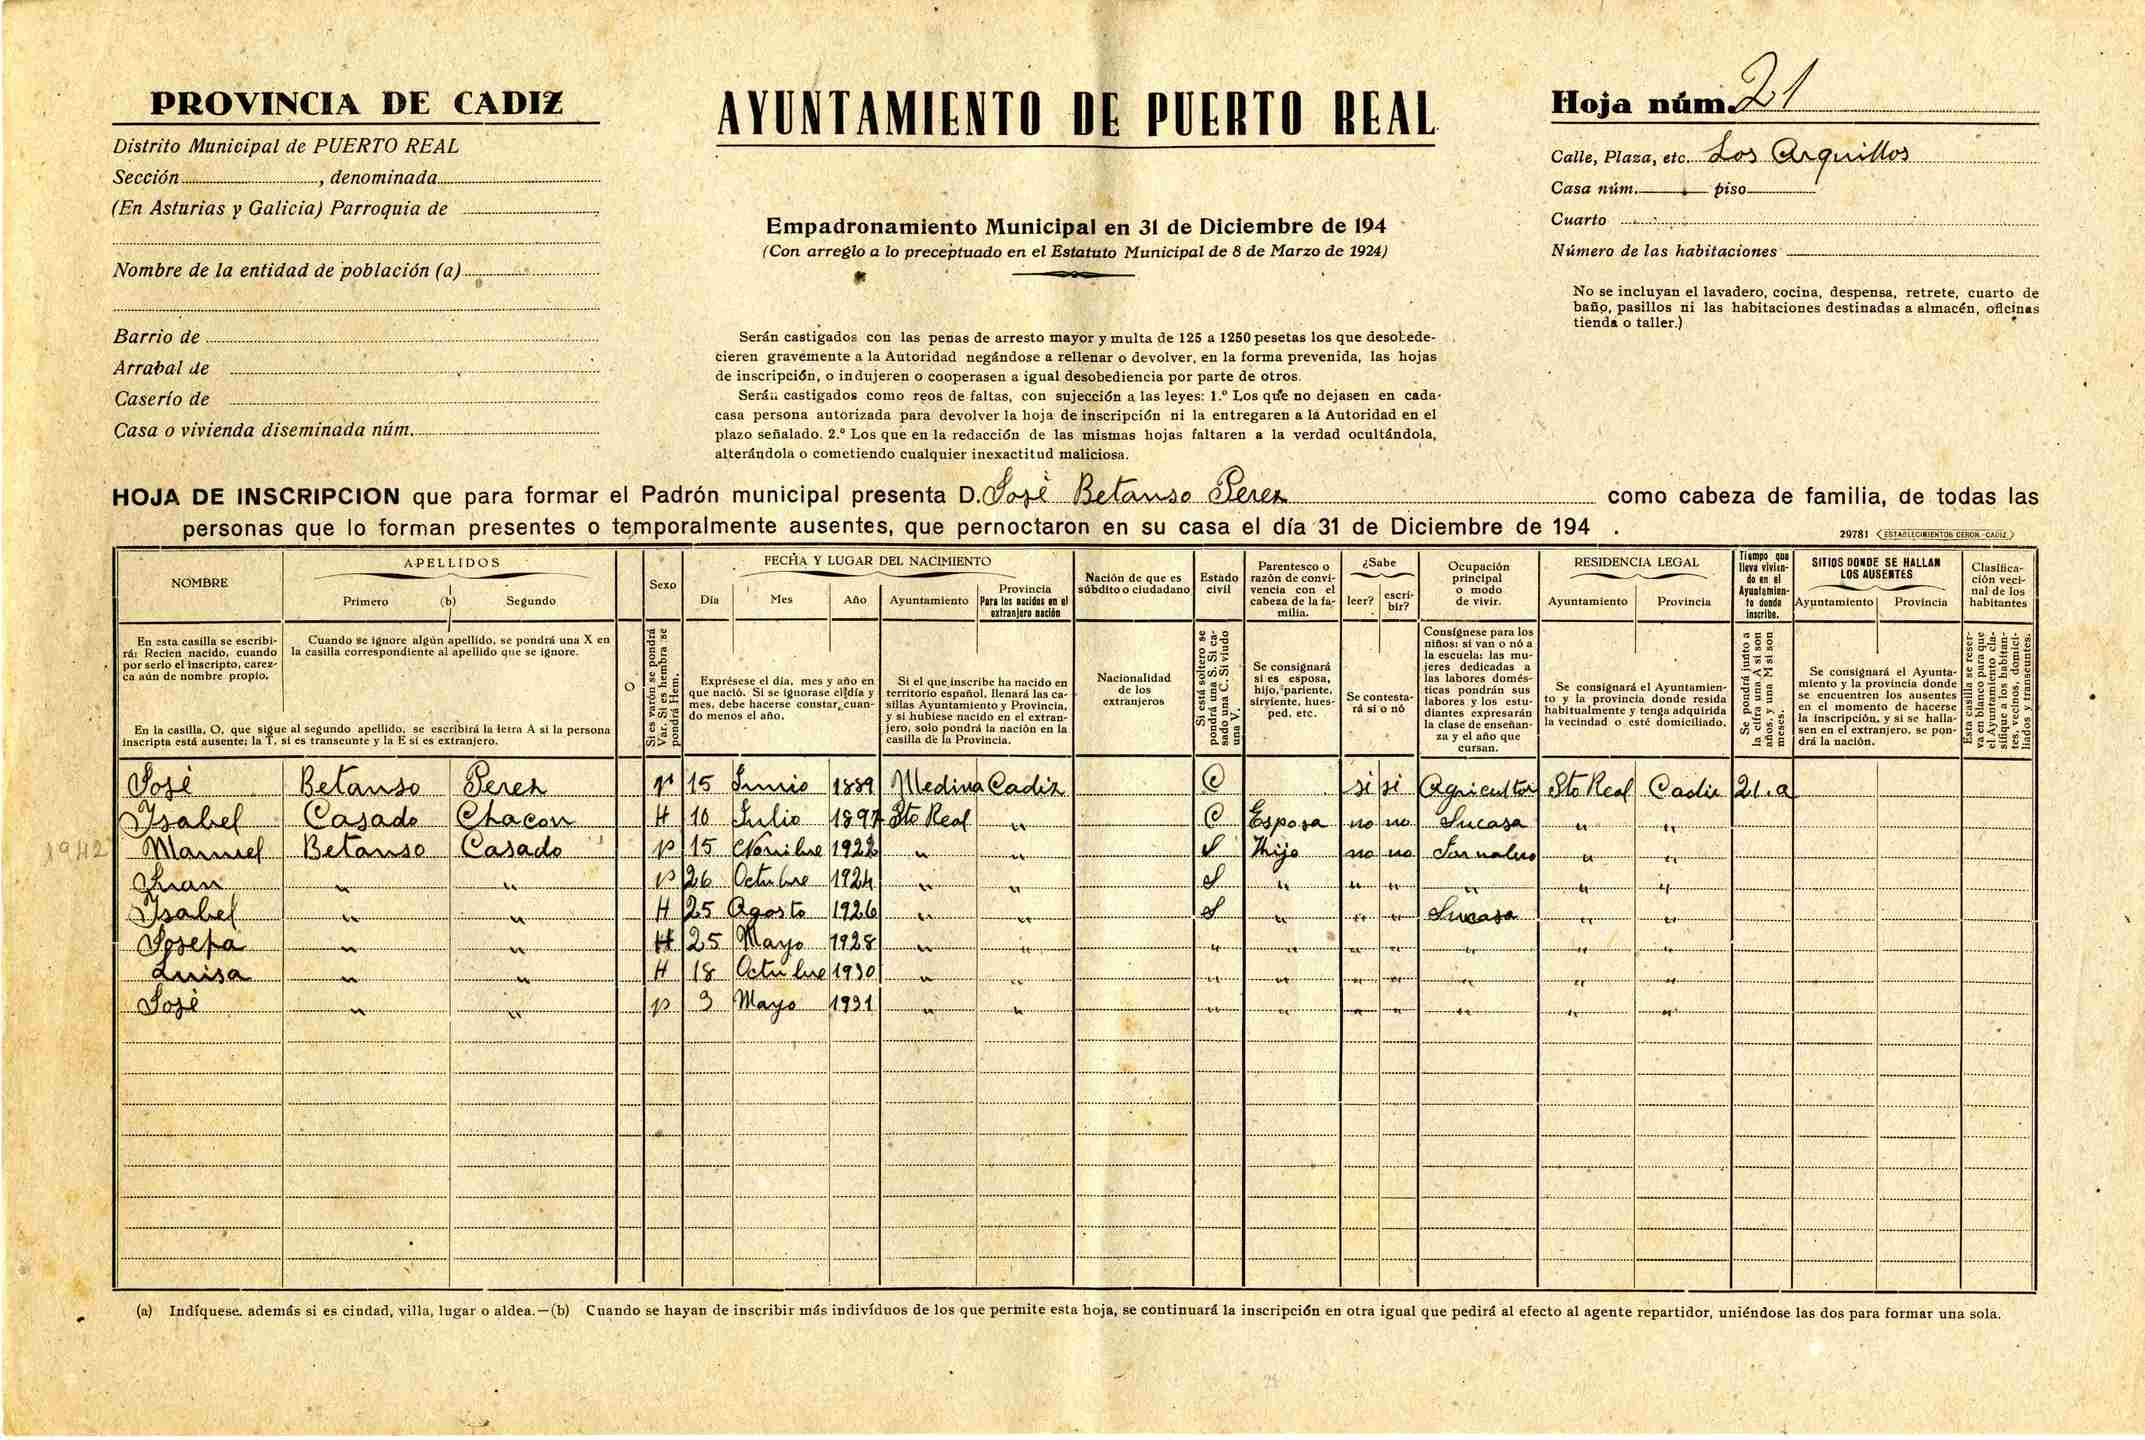 PROVINCIA DE CADIZ
Distrito Municipal de PUERTO REAL
Sección , denominada
(En Asturias y Galicia) Parroquia de
Nombre de la entidad de población (a)
Barrio de
Arrabal de
Caserío de
Casa o vivienda diseminada núm.
AYUNTAMIENTO DE PUERTO REAL
Empadronamiento Municipal en 31 de Diciembre de 194
(Con arreglo a lo preceptuado en el Estatuto Municipal de 8 de Marzo de 1924)
Serán castigados con las penas de arresto mayor y multa de 125 a 1250 pesetas los que desobede-
cieren gravemente a la Autoridad negándose a rellenar o devolver, en la forma prevenida, las hojas
de inscripción, o indujeren o cooperasen a igual desobediencia por parte de otros.
Serán castigados como reos de faltas, con sujección a las leyes: 1.º Los que no dejasen en cada
casa persona autorizada para devolver la hoja de inscripción ni la entregaren a la Autoridad en el
plazo señalado. 2.º Los que en la redacción de las mismas hojas faltaren a la verdad ocultándola,
alterándola o cometiendo cualquier inexactitud maliciosa.
Hoja núm. 21
Calle, Plaza, etc. Los Arquillos
Casa núm. piso
Cuarto
Número de las habitaciones
No se incluyan el lavadero, cocina, despensa, retrete, cuarto de
baño, pasillos ni las habitaciones destinadas a almacén, oficinas
tienda o taller.)
HOJA DE INSCRIPCION que para formar el Padrón municipal presenta D. José Betanso Perez como cabeza de familia, de todas las
personas que lo forman presentes o temporalmente ausentes, que pernoctaron en su casa el día 31 de Diciembre de 194 .
29781 ESTABLECIMIENTOS CERON.-CADIZ
NOMBRE
APELLIDOS
Primero (b) Segundo
Sexo
FECHA Y LUGAR DEL NACIMIENTO
Día Mes Año Ayuntamiento
Provincia
Para los nacidos en el
extranjero nación
Nación de que es
súbdito o ciudadano
Estado
civil
Parentesco o
razón de convi-
vencia con el
cabeza de la fa-
milia.
¿Sabe
leer? escri-
bir?
Ocupación
principal
o modo
de vivir.
RESIDENCIA LEGAL
Ayuntamiento Provincia
Tiempo que
lleva vivien-
do en el
Ayuntamien-
to donde
inscribe.
SITIOS DONDE SE HALLAN
LOS AUSENTES
Ayuntamiento Provincia
Clasifica-
ción veci-
nal de los
habitantes
En esta casilla se escribi-
rá: Recien nacido, cuando
por serlo el inscripto, carez-
ca aún de nombre propio.
Cuando se ignore algún apellido, se pondrá una X en
la casilla correspondiente al apellido que se ignore.
En la casilla, O, que sigue al segundo apellido, se escribirá la letra A si la persona
inscripta está ausente; la T, si es transeunte y la E si es extranjero.
O
Si es varón se pondrá
Var. Si es hembra se
pondrá Hem.
Exprésese el día, mes y año en
que nació. Si se ignorase el día y
mes, debe hacerse constar, cuan-
do menos el año.
Si el que inscribe ha nacido en
territorio español, llenará las ca-
sillas Ayuntamiento y Provincia,
y si hubiese nacido en el extran-
jero, solo pondrá la nación en la
casilla de la Provincia.
Nacionalidad
de los
extranjeros
Si está soltero se
pondrá una S. Si ca-
sado una C. Si viudo
una V.
Se consignará
si es esposa,
hijo, pariente,
sirviente, hues-
ped, etc.
Se contesta-
rá si o nó
Consígnese para los
niños: si van o nó a
la escuela: las mu-
jeres dedicadas a
las labores domés-
ticas pondrán sus
labores y los estu-
diantes expresarán
la clase de enseñan-
za y el año que
cursan.
Se consignará el Ayuntamien-
to y la provincia donde resida
habitualmente y tenga adquirida
la vecindad o esté domiciliado.
Se pondrá junto a
la cifra una A si son
años, y una M si son
meses.
Se consignará el Ayunta-
miento y la provincia donde
se encuentren los ausentes
en el momento de hacerse
la inscripción, y si se halla-
sen en el extranjero, se pon-
drá la nación.
Esta casilla se reser-
va en blanco para que
el Ayuntamiento cla-
sifique a los habitan-
tes, vecinos, domici-
liados y transeuntes.
José Betanso Perez 15 Junio 1889 Medina Cadiz C si si Agricultor Pto Real Cadiz 21.a
Isabel Casado Chacon H 10 Julio 1897 Pto Real " C Esposa no no Sucasa " "
1942 Manuel Betanso Casado 15 Novibre 1922 " " S Hijo no no Jornalero " "
Juan " " 26 Octubre 1924 " " S " " " " " "
Isabel " " H 25 Agosto 1926 " " S " " " Sucasa " "
Josefa " " H 25 Mayo 1928 " " " " " " " " "
Luisa " " H 18 Octubre 1930 " " " " " " " " "
José " " 3 Mayo 1931 " " " " " " " " "
(a) Indíquese. además si es ciudad, villa, lugar o aldea.—(b) Cuando se hayan de inscribir más indivíduos de los que permite esta hoja, se continuará la inscripción en otra igual que pedirá al efecto al agente repartidor, uniéndose las dos para formar una sola.